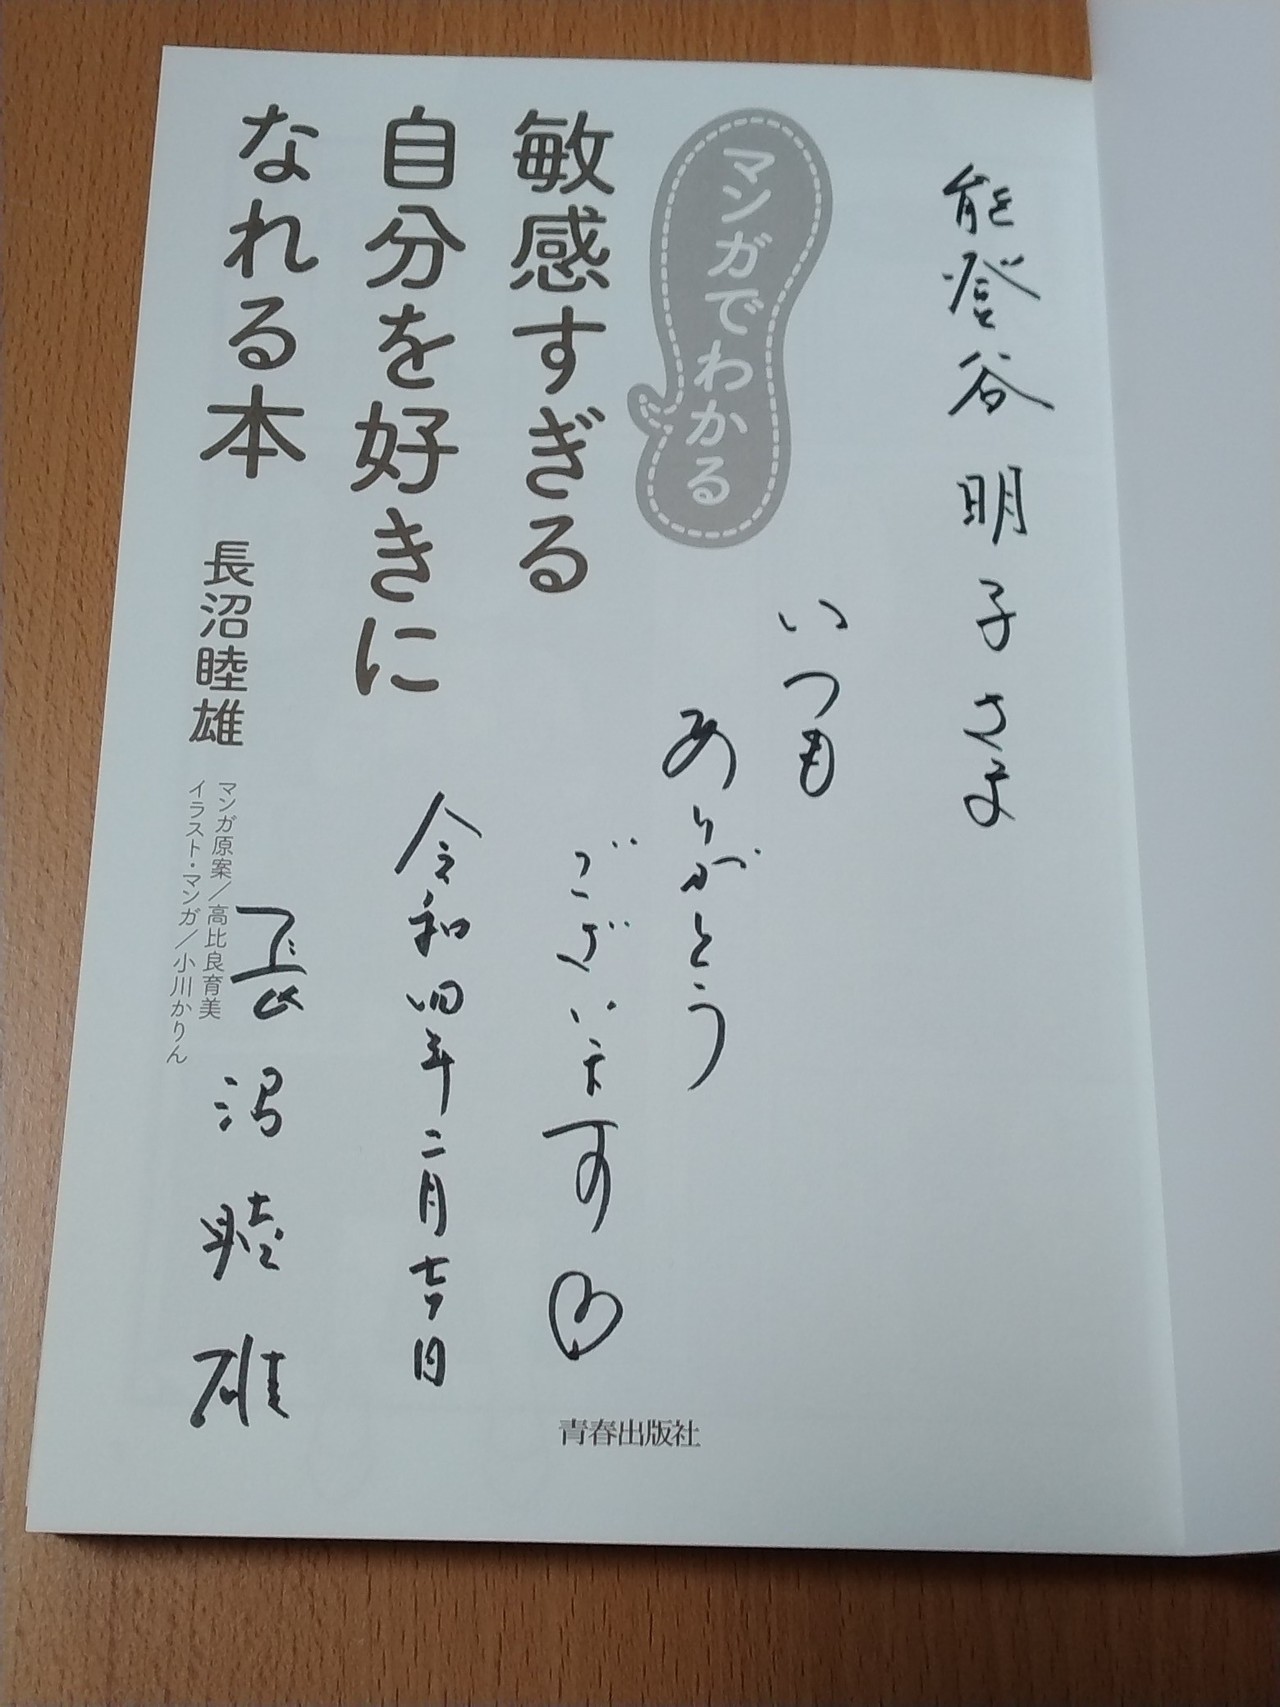 能登谷明子さま
いつも
ありがとう
ございます
令和四年二月吉日
長沼睦雄
マンガでわかる
敏感すぎる
自分を好きに
なれる本
長沼睦雄
マンガ原案／高比良育美
イラスト・マンガ／小川かりん
青春出版社